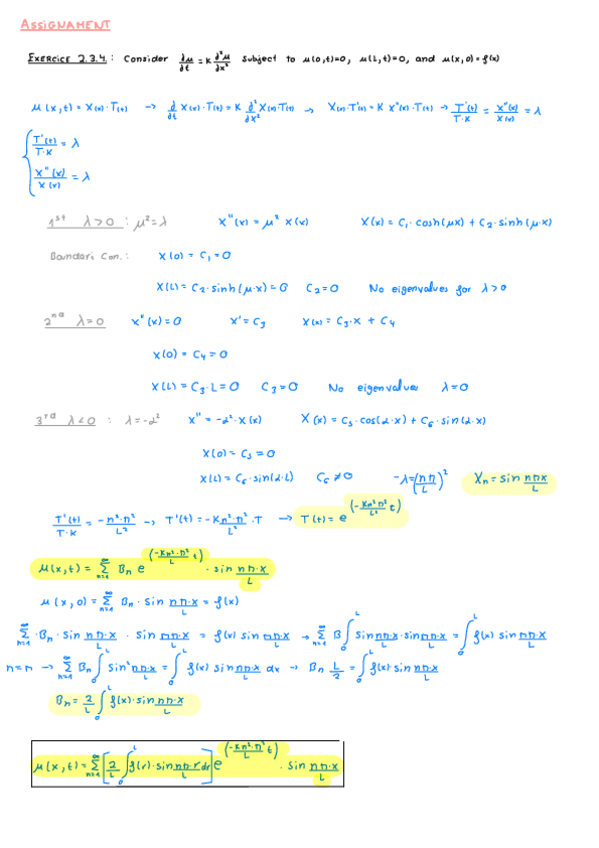 ASSIGNAMENT
EXERCICE 2.3.4.: Consider ∂u/∂t = K ∂²u/∂x² subject to u(0,t)=0, u(L,t)=0, and u(x,0)=f(x)
u(x,t) = X(x)·T(t) → ∂/∂t X(x)·T(t) = K ∂²/∂x² X(x)·T(t) → X(x)·T'(t) = K X''(x)·T(t) → T'(t)/T·K = X''(x)/X(x) = λ
T'(t)/T·K = λ
X''(x)/X(x) = λ
1st λ>0 : μ²=λ X''(x) = μ² X(x) X(x) = C₁·cosh(μx) + C₂·sinh(μ·x)
Boundari Con.: X(0) = C₁ = 0
X(L) = C₂·sinh(μ·x) = 0 C₂=0 No eigenvalues for λ>0
2nd λ=0 X''(x) = 0 X' = C₃ X(x) = C₃·x + C₄
X(0) = C₄ = 0
X(L) = C₃·L = 0 C₃=0 No eigenvalues λ=0
3rd λ<0 : λ=-α² X'' = -α²·X(x) X(x) = C₅·cos(α·x) + C₆·sin(α·x)
X(0) = C₅ = 0
X(L) = C₆·sin(α·L) C₆ ≠ 0 -λ = (nπ/L)² Xₙ = sin nπx/L
T'(t)/T·K = -n²·π²/L² → T'(t) = -Kn²·π²/L² ·T → T(t) = e^(-Kn²·π²/L² t)
u(x,t) = Σ n=1 ∞ Bₙ e^(-Kn²·π²/L t) · sin nπ·x/L
u(x,0) = Σ n=1 ∞ Bₙ · sin nπ·x/L = f(x)
Σ n=1 ∞ ·Bₙ · sin nπ·x/L · sin mπ·x/L = f(x) sin mπ·x/L → Σ n=1 ∞ B ∫₀ᴸ sin nπ·x/L · sin mπ·x/L = ∫₀ᴸ f(x) sin mπ·x/L
n=m → Σ n=1 ∞ Bₙ ∫₀ᴸ sin² nπ·x/L = ∫₀ᴸ f(x) sin nπ·x/L dx → Bₙ L/2 = ∫₀ᴸ f(x)·sin nπ·x/L
Bₙ = 2/L ∫₀ᴸ f(x)·sin nπ·x/L
u(x,t) = Σ n=1 ∞ [2/L ∫₀ᴸ f(r)·sin nπ·r/L dr] e^(-Kn²·π²/L t) · sin nπ·x/L